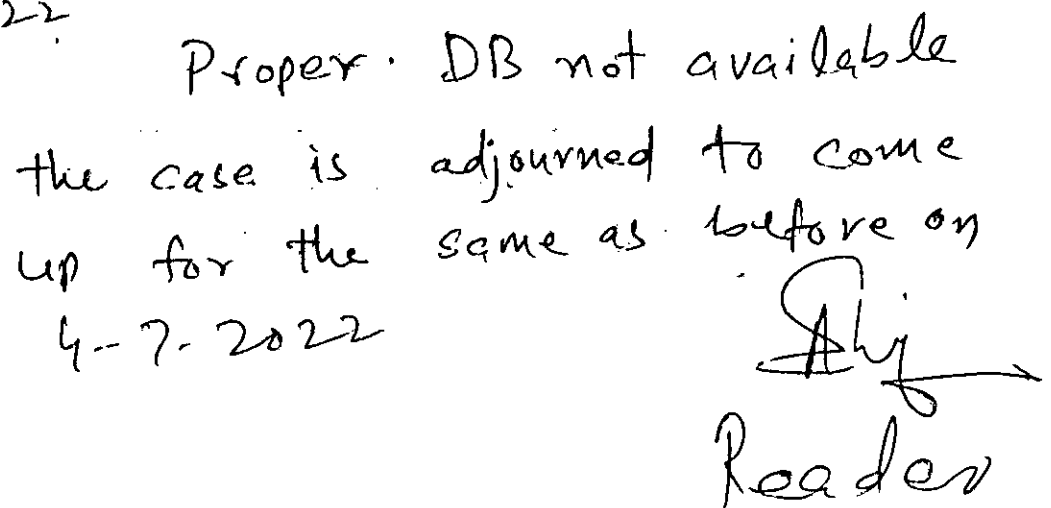 22
Proper. DB not available
the case is adjourned to come
up for the same as before on
4-7-2022
Reader